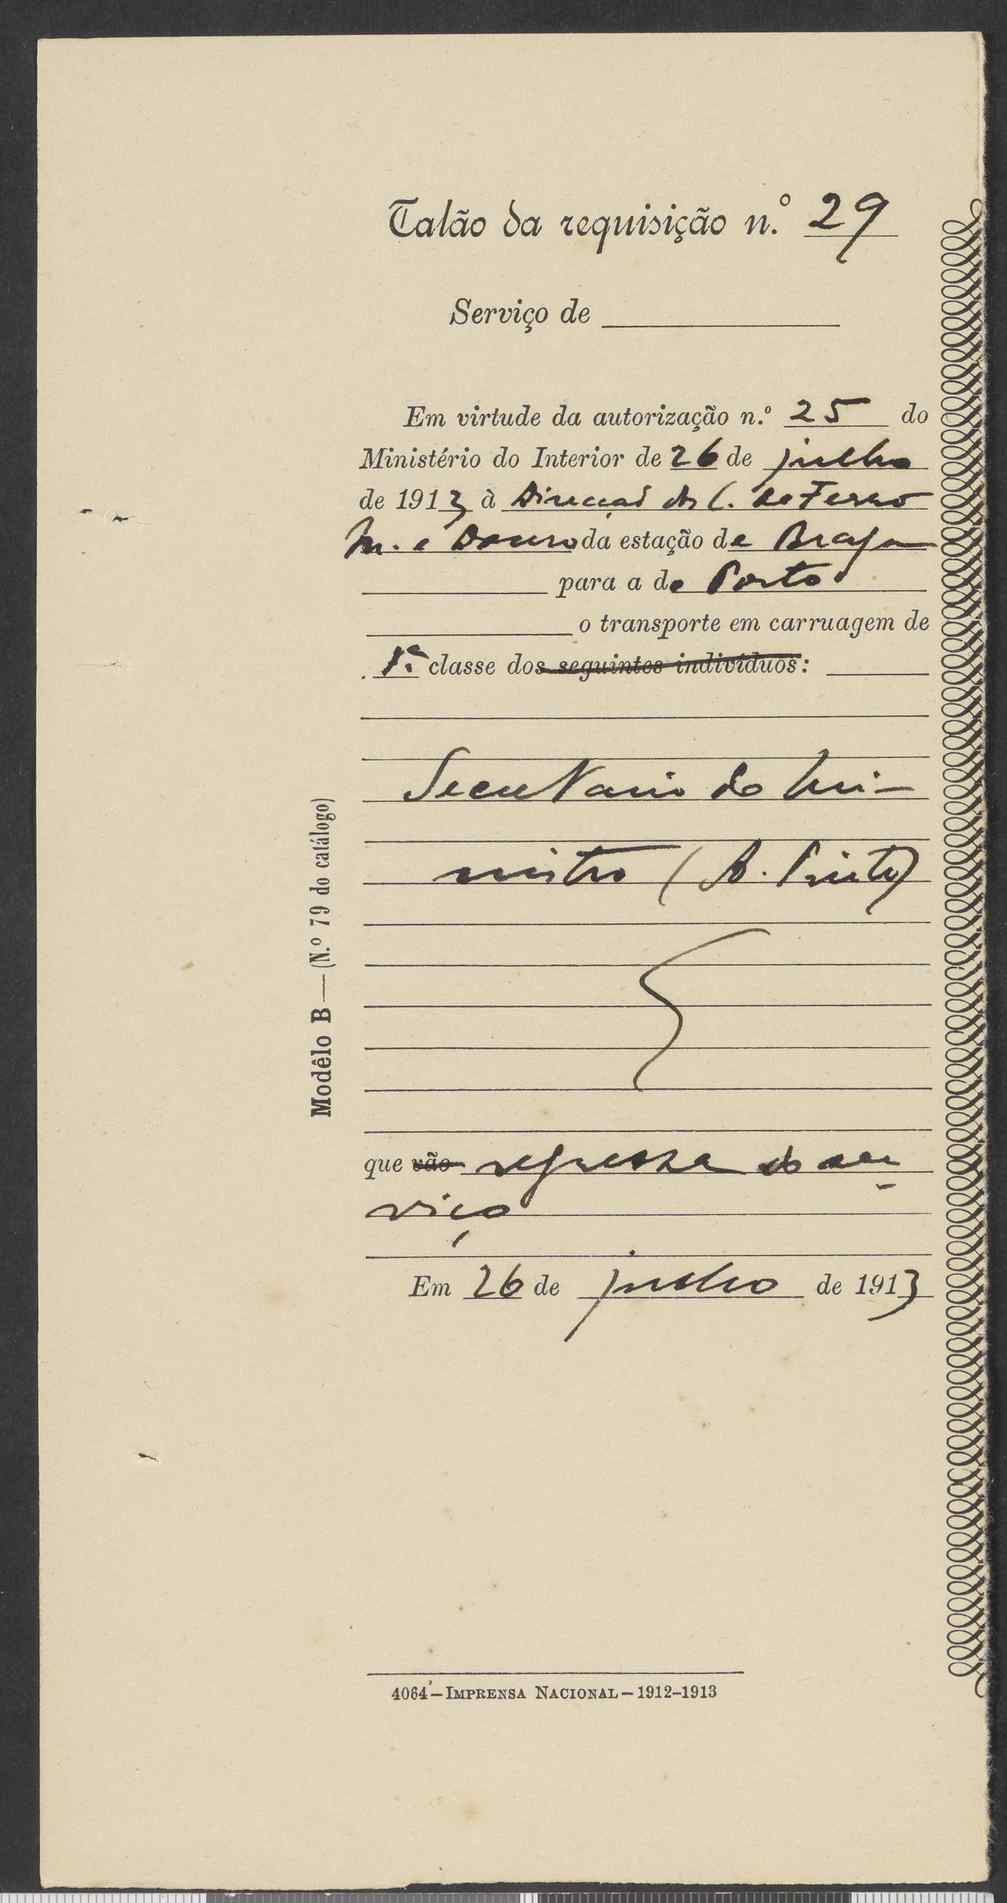 Talão da requisição n.º 29
Serviço de
Em virtude da autorização n.º 25 do
Ministério do Interior de 26 de julho
de 1913 à Direcção dos C. de Ferro
M. e Douro da estação de Braga
para a de Porto
o transporte em carruagem de
1.ª classe dos seguintes indivíduos:
Secretario do Mi-
nistro (A. Pinto)
que vão regressa do ser
viço
Em 26 de julho de 1913
Modêlo B — (N.º 79 do catálogo)
4064 — IMPRENSA NACIONAL — 1912-1913